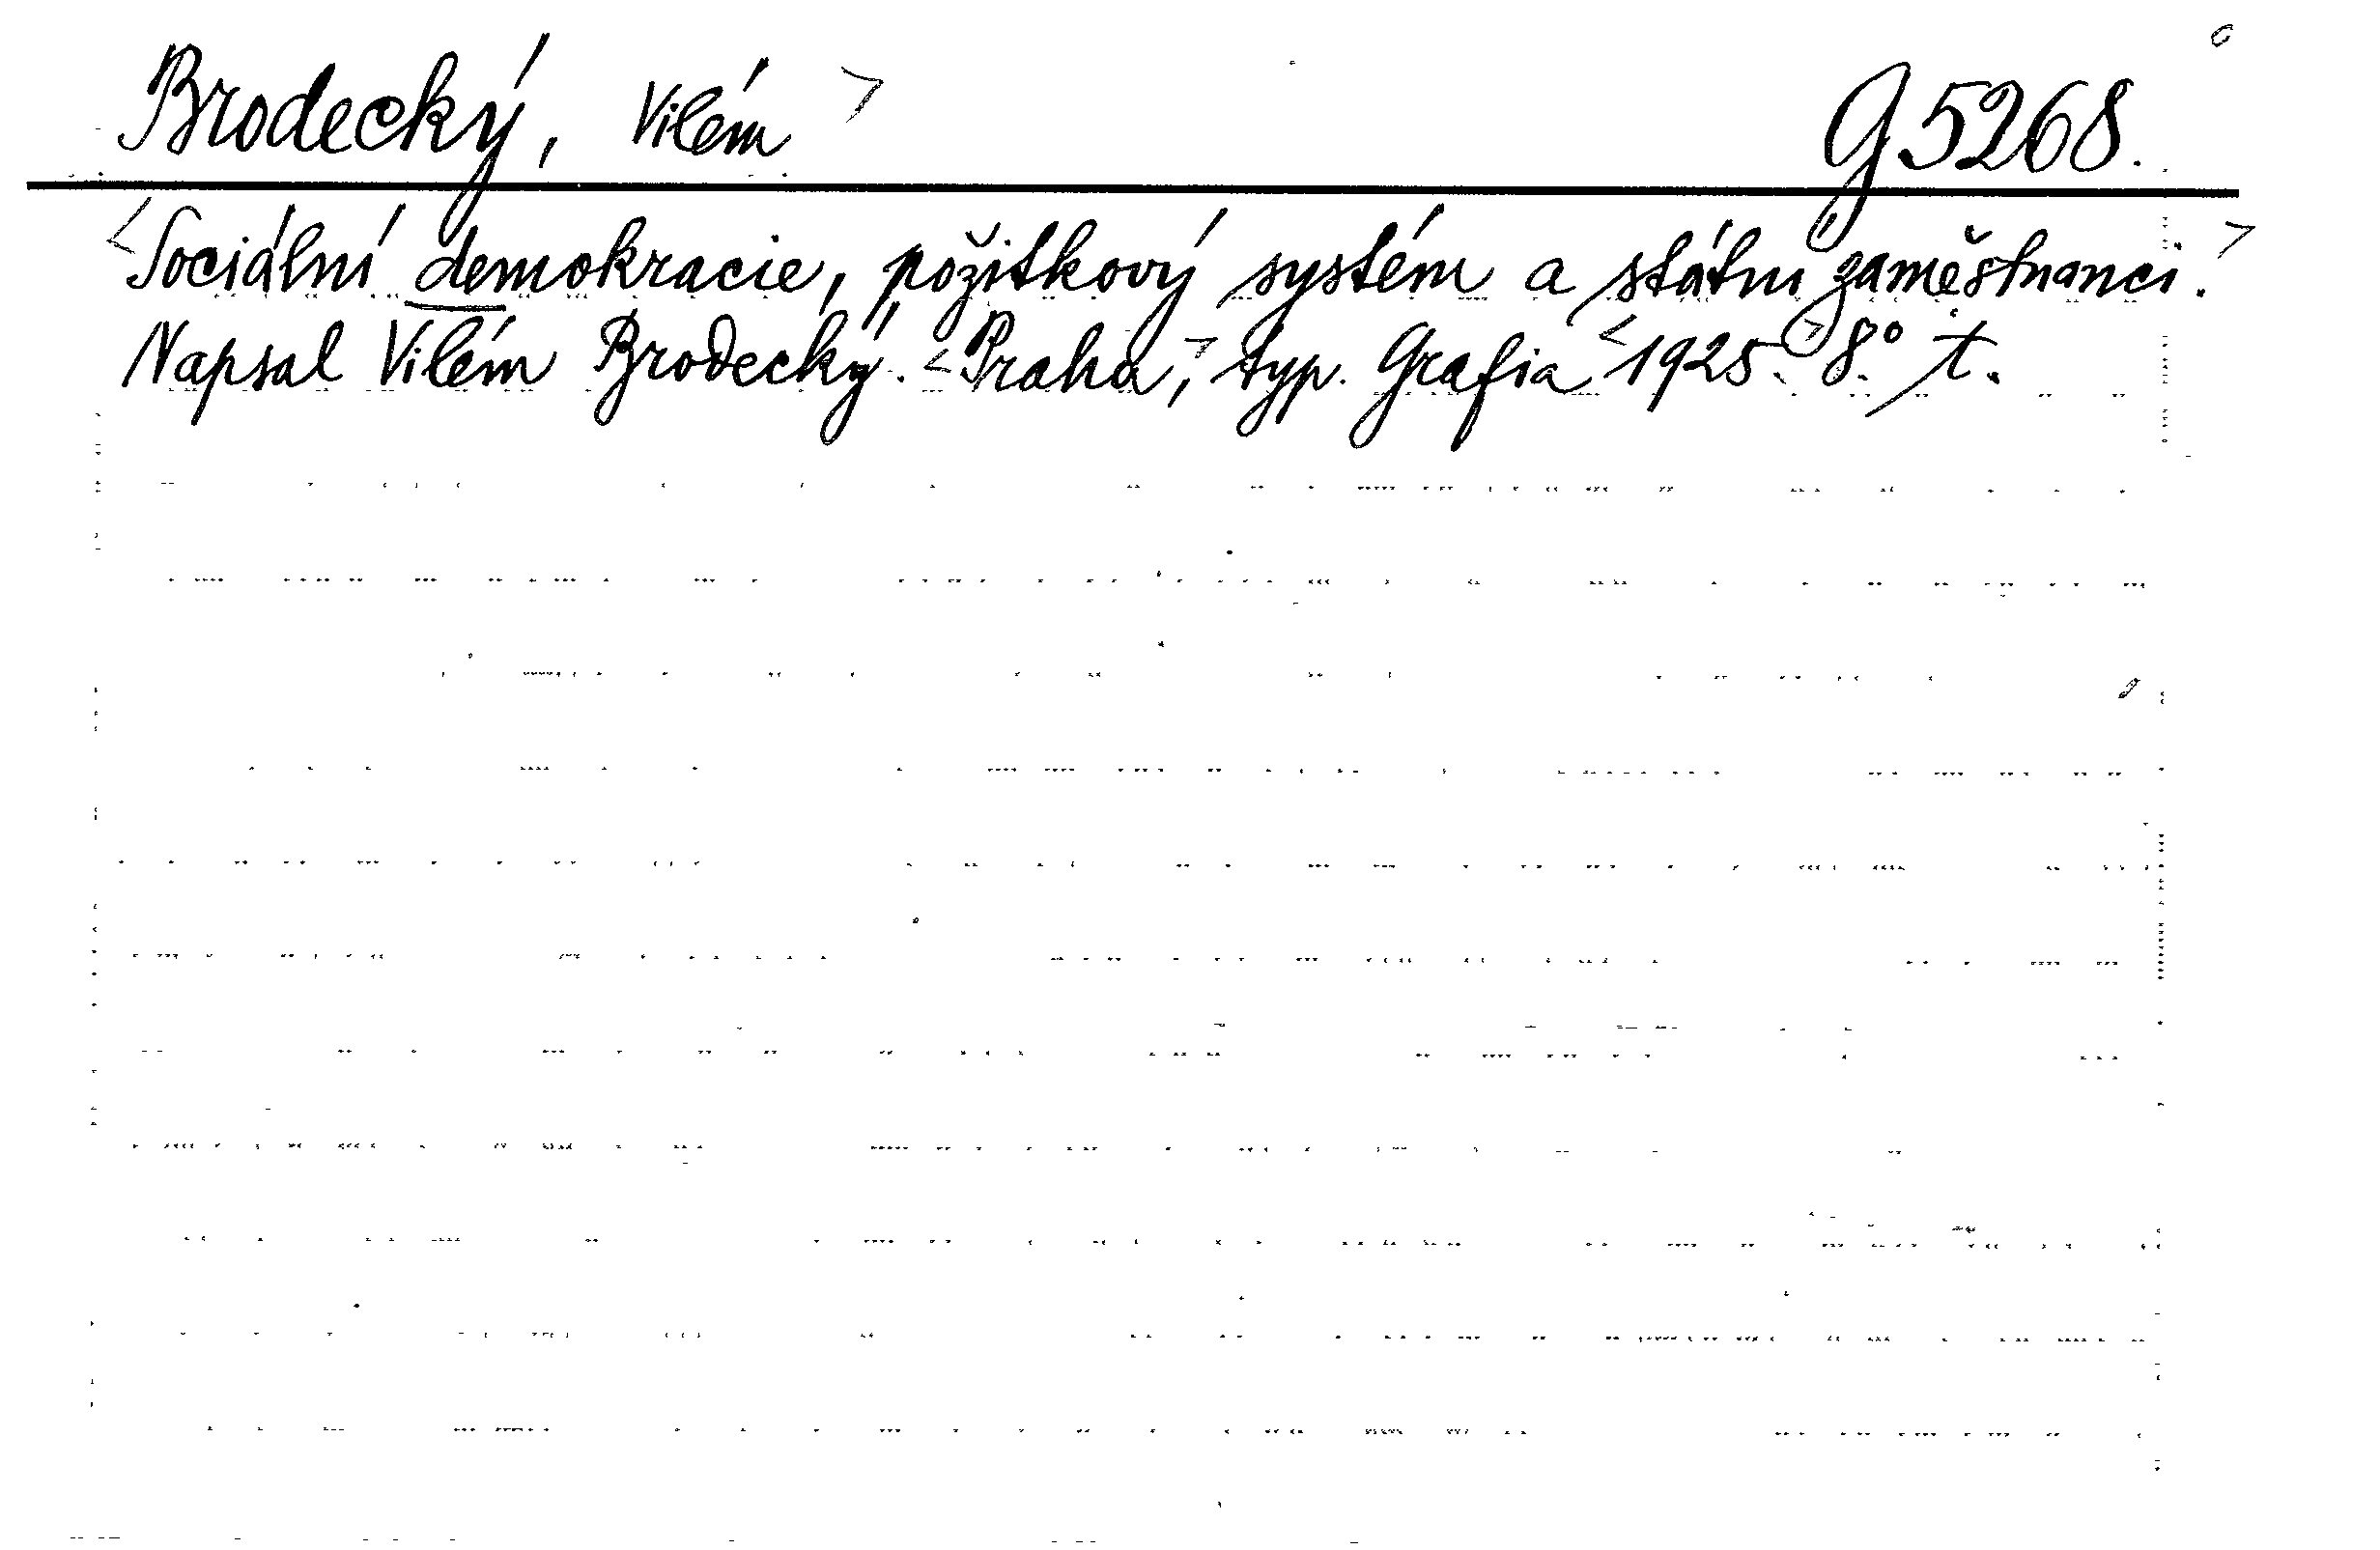 Brodecký, Vilém > G 5268.
<Sociální demokracie, požitkový systém a státní zaměstnanci.>
Napsal Vilém Brodecký. <Praha,> typ. Grafia <1925.> 8° t.